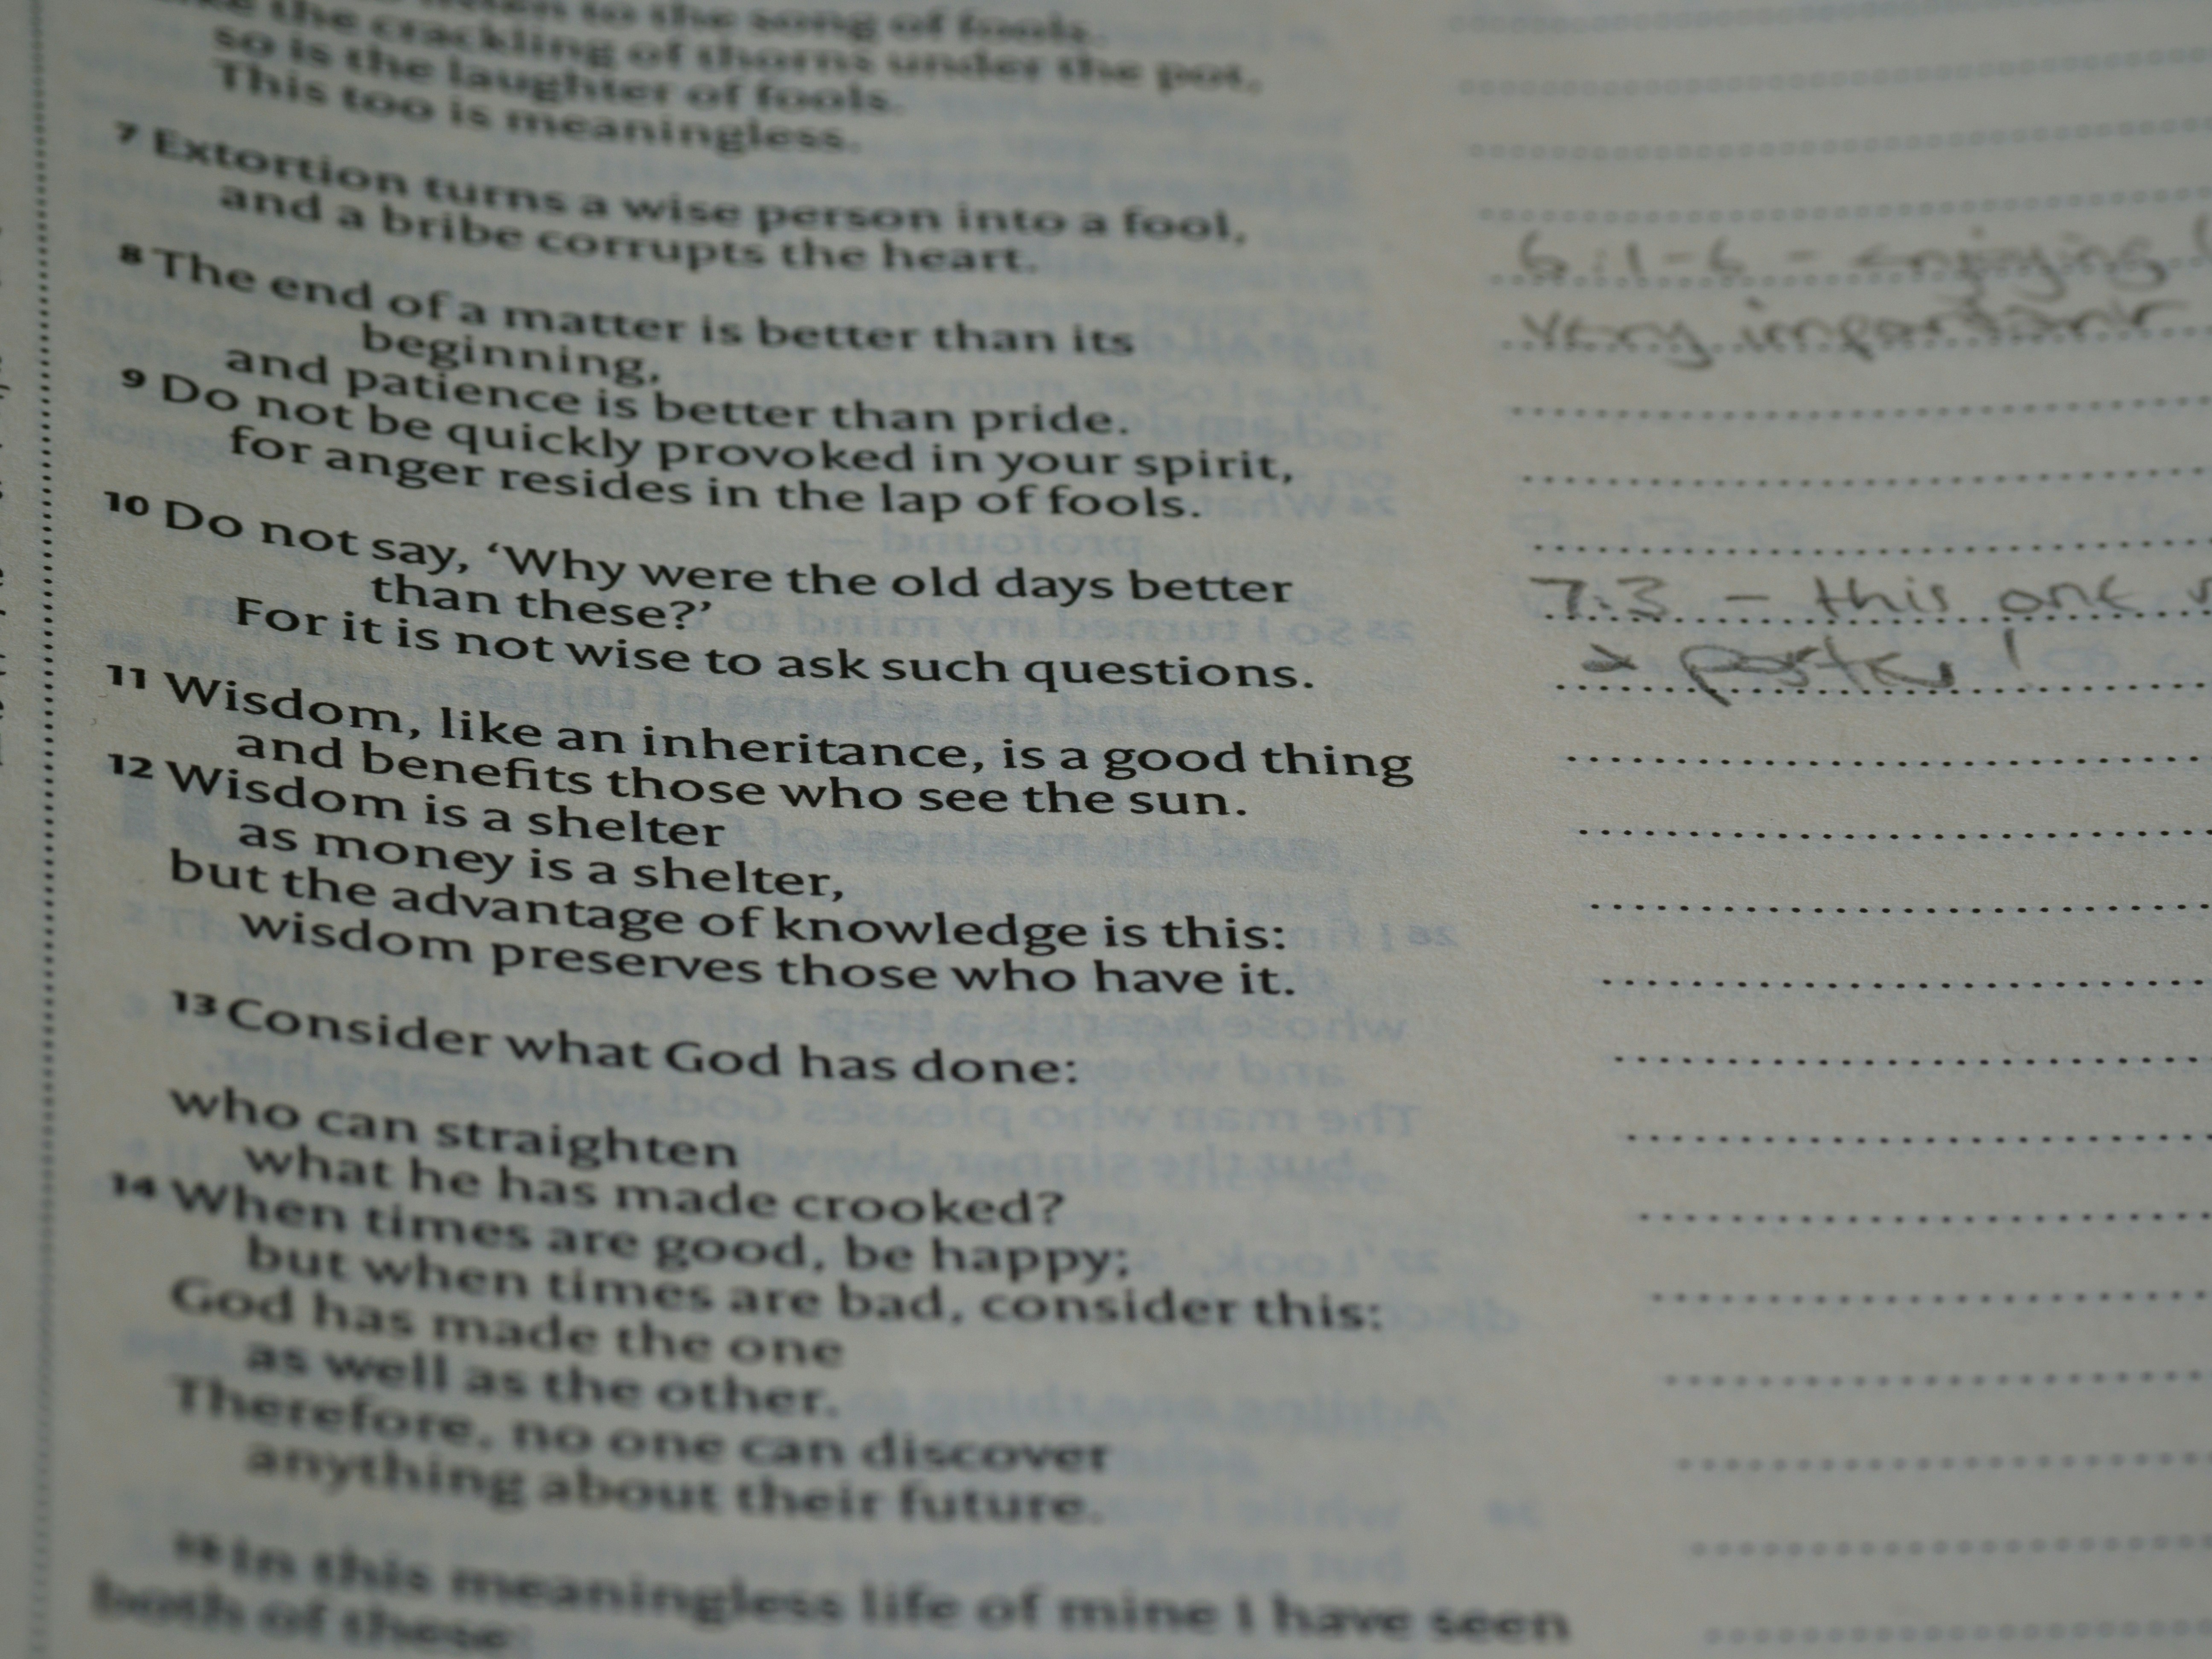 to the song of fools.
the crackling of thorns under the pot,
so is the laughter of fools.
This too is meaningless.
7 Extortion turns a wise person into a fool,
and a bribe corrupts the heart.
8 The end of a matter is better than its
beginning,
and patience is better than pride.
9 Do not be quickly provoked in your spirit,
for anger resides in the lap of fools.
10 Do not say, ‘Why were the old days better
than these?’
For it is not wise to ask such questions.
11 Wisdom, like an inheritance, is a good thing
and benefits those who see the sun.
12 Wisdom is a shelter
as money is a shelter,
but the advantage of knowledge is this:
wisdom preserves those who have it.
13 Consider what God has done:
who can straighten
what he has made crooked?
14 When times are good, be happy;
but when times are bad, consider this:
God has made the one
as well as the other.
Therefore, no one can discover
anything about their future.
15 In this meaningless life of mine I have seen
both of these
6:1-6 - enjoying
very important
7:3 - this one
poster!